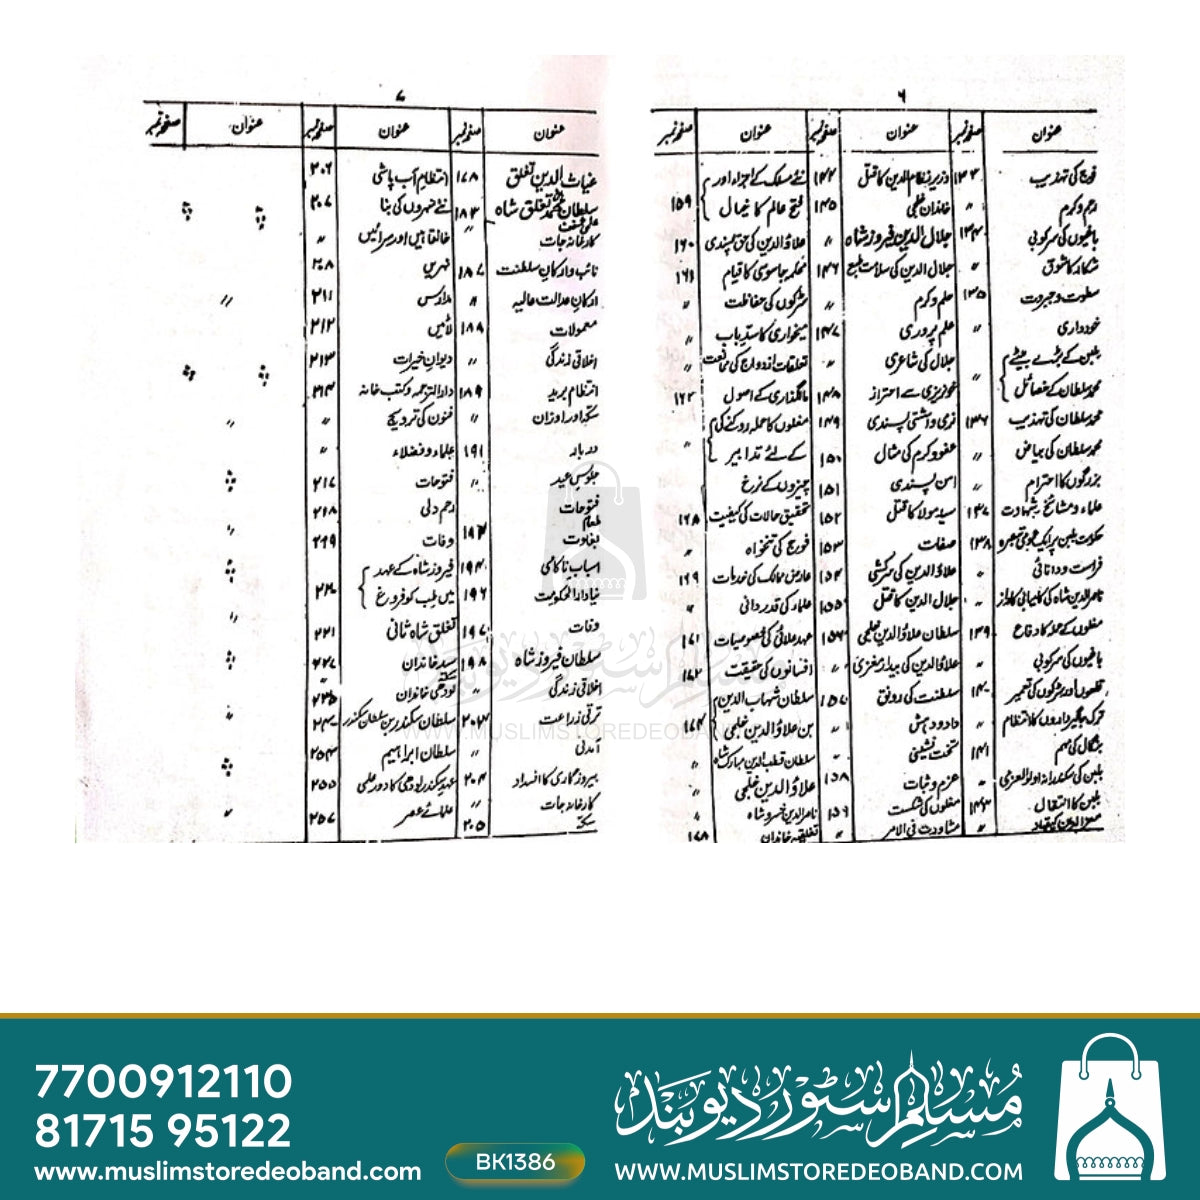 ۶
عنوان صفحہ نمبر عنوان صفحہ نمبر عنوان صفحہ نمبر
فوج کی تہذیب ۱۳۳
رحم و کرم 〃
باغیوں کی سرکوبی ۱۳۴
شکار کا شوق 〃
سطوت و جبروت ۱۳۵
خودداری 〃
بلبن کے بڑے بیٹے
محمد سلطان کے خصائل 〃
محمد سلطان کی تہذیب ۱۳۶
محمد سلطان کی بیاض 〃
بزرگوں کا احترام 〃
علماء و مشائخ شہادت ۱۳۷
۱۳۸
فراست و دانائی 〃
مغلوں کے حملہ کا دفاع ۱۳۹
باغیوں کی سرکوبی 〃
قلعوں اور سڑکوں کی تعمیر ۱۴۰
ترک جاگیرداروں کا انتظام 〃
بنگال کی مہم ۱۴۱
بلبن کی سکندرانہ اولوالعزمی 〃
بلبن کا انتقال ۱۴۳
معزالدین کیقباد 〃
وزیر نظام الدین کا قتل ۱۴۴
خاندان خلجی ۱۴۵
جلال الدین فیروز شاہ 〃
جلال الدین کی سلامت طبع ۱۴۶
حلم و کرم 〃
علم پروری ۱۴۷
جلال کی شاعری 〃
خونریزی سے احتراز ۱۴۸
نرمی و آشتی پسندی ۱۴۹
عفو و کرم کی مثال ۱۵۰
امن پسندی ۱۵۱
سید مولا کا قتل ۱۵۲
صفات ۱۵۳
علاؤالدین کی سرکشی ۱۵۴
جلال الدین کا قتل ۱۵۵
سلطان علاؤالدین خلجی ۱۵۶
علاؤالدین کی بیدار مغزی 〃
سلطنت کی رونق ۱۵۷
داد و دہش 〃
تخت نشینی 〃
عزم و ثبات ۱۵۸
مغلوں کی شکست ۱۵۹
مشاورت فی الامر 〃
نئے مسلک کے اجراء اور
فتح عالم کا خیال ۱۵۹
علاؤالدین کی حق پسندی ۱۶۰
محکمہ جاسوسی کا قیام ۱۶۱
سڑکوں کی حفاظت 〃
میخواری کا سدِّ باب 〃
تعلقات ازدواج کی ممانعت 〃
مالگذاری کے اصول ۱۶۲
مغلوں کا حملہ روکنے کی
کے لئے تدابیر 〃
چیزوں کے نرخ
تحقیق حالات کی کیفیت ۱۶۸
فوج کی تنخواہ 〃
عارض ممالک کی خدمات ۱۶۹
علماء کی قدردانی 〃
عہد علائی کی خصوصیات ۱۷۱
افسانوں کی حقیقت ۱۷۲
سلطان شہاب الدین
بن علاؤالدین خلجی ۱۷۴
سلطان قطب الدین مبارک شاہ 〃
علاؤالدین خلجی 〃
ناصرالدین خسرو شاہ 〃
تغلقیہ خاندان ۱۷۸
۷
عنوان صفحہ نمبر عنوان صفحہ نمبر عنوان صفحہ نمبر
غیاث الدین تغلق ۱۷۸
سلطان محمد تغلق شاہ ۱۸۳
کارخانہ جات 〃
نائب و ارکان سلطنت ۱۸۷
ارکان عدالت عالیہ 〃
معمولات ۱۸۸
اخلاقی زندگی 〃
انتظام برید ۱۸۹
سکہ اور اوزان 〃
دربار ۱۹۱
جلوس عید 〃
فتوحات
بغاوت ۱۹۳
اسباب ناکامی ۱۹۴
نیا دارالحکومت ۱۹۶
وفات ۱۹۷
سلطان فیروز شاہ ۱۹۸
اخلاقی زندگی 〃
ترقی زراعت ۲۰۳
آمدنی 〃
بیروزگاری کا انسداد ۲۰۴
کارخانہ جات 〃
سکے ۲۰۵
انتظام آب پاشی ۲۰۶
نئے شہروں کی بنا ۲۰۷
خانقاہیں اور سرائیں 〃
نہریں ۲۰۸
مدارس ۲۱۱
لاٹیں ۲۱۲
دیوان خیرات ۲۱۳
دارالترجمہ و کتب خانہ ۲۱۴
فنون کی ترویج 〃
علماء و فضلاء 〃
فتوحات ۲۱۷
رحم دلی ۲۱۸
وفات ۲۱۹
فیروز شاہ کے عہد
میں طب کو فروغ ۲۲۰
تغلق شاہ ثانی ۲۲۱
سید خاندان ۲۲۷
لودھی خاندان ۲۳۵
سلطان سکندر بن سلطان سکندر
سلطان ابراہیم ۲۵۴
عہد سکندر لودھی کا دور علمی ۲۵۵
علمائے عصر ۲۵۷
مسلم سٹور دیوبند
WWW.MUSLIMSTOREDEOBAND
7700912110
81715 95122
www.muslimstoredeoband.com
BK1386
مسلم سٹور دیوبند
WWW.MUSLIMSTOREDEOBAND.COM